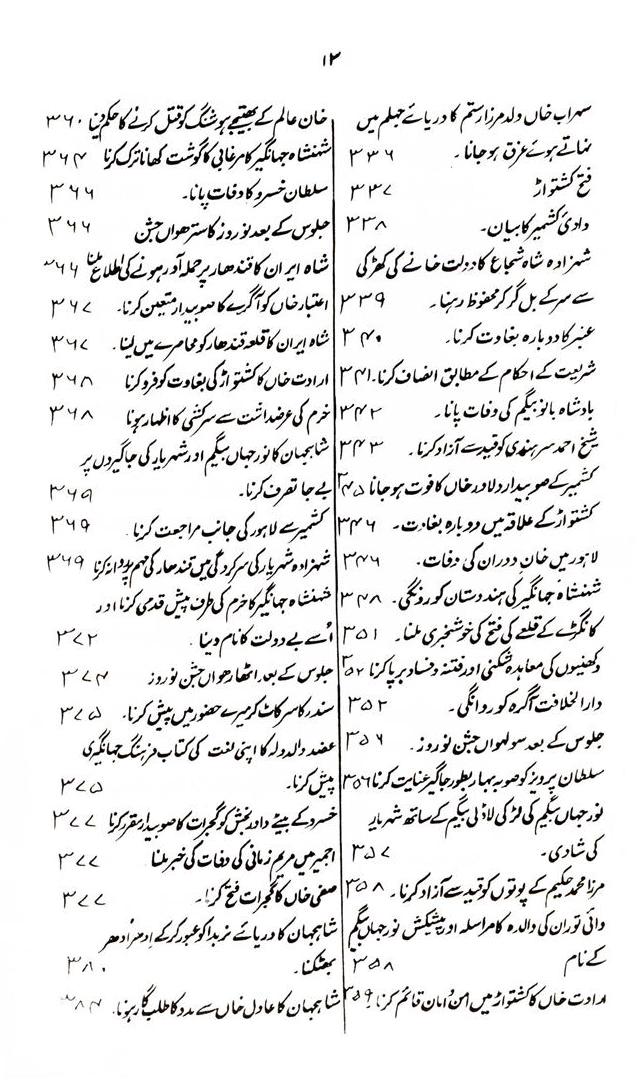 ۱۲
سہراب خاں ولد مرزا رستم کا دریائے جہلم میں
نہاتے ہوئے غرق ہو جانا۔ ۳۳۶
فتح کشتواڑ ۳۳۷
وادیٔ کشمیر کا بیان۔ ۳۳۸
شہزادہ شاہ شجاع کا دولت خانے کی کھڑکی
سے سر کے بل گر کر محفوظ رہنا۔ ۳۳۹
عنبر کا دوبارہ بغاوت کرنا۔ ۳۴۰
شریعت کے احکام کے مطابق انصاف کرنا۔ ۳۴۱
بادشاہ بانو بیگم کی وفات پانا۔ ۳۴۲
شیخ احمد سرہندی کو قید سے آزاد کرنا۔ ۳۴۳
کشمیر کے صوبیدار دلاور خاں کا فوت ہو جانا ۳۴۵
کشتواڑ کے علاقہ میں دوبارہ بغاوت۔ ۳۴۶
لاہور میں خان دوران کی وفات۔ ۳۴۶
شہنشاہ جہانگیر کی ہندوستان کو روانگی۔ ۳۴۸
کانگڑے کے قلعے کی فتح کی خوشخبری ملنا۔ ۳۵۱
دکھنیوں کی معاہدہ شکنی اور فتنہ و فساد برپا کرنا ۳۵۲
دارالخلافت آگرہ کو روانگی۔ ۳۵۲
جلوس کے بعد سولھواں جشن نوروز۔ ۳۵۶
سلطان پرویز کو صوبہ بہار بطور جاگیر عنایت کرنا ۳۵۶
نور جہاں بیگم کی لڑکی لاڈلی بیگم کے ساتھ شہریار
کی شادی۔ ۳۵۷
مرزا محمد حکیم کے پوتوں کو قید سے آزاد کرنا۔ ۳۵۸
والیٔ توران کی والدہ کا مراسلہ اور پیشکش نور جہاں بیگم
کے نام ۳۵۸
ارادت خاں کا کشتواڑ میں امن و امان قائم کرنا۔ ۳۵۹
خان عالم کے بھتیجے ہوشنگ کو قتل کرنے کا حکم دینا ۳۶۰
شہنشاہ جہانگیر کا مرغابی کا گوشت کھانا ترک کرنا ۳۶۴
سلطان خسرو کا وفات پانا۔ ۳۶۶
جلوس کے بعد نوروز کا سترھواں جشن ۳۶۶
شاہ ایران کا قندھار پر حملہ آور ہونے کی اطلاع ملنا ۳۶۶
اعتبار خاں کو آگرے کا صوبیدار متعین کرنا۔ ۳۶۷
شاہ ایران کا قلعہ قندھار کو محاصرے میں لینا۔ ۳۶۷
ارادت خاں کا کشتواڑ کی بغاوت کو فرو کرنا ۳۶۸
خرم کی عرضداشت سے سرکشی کا اظہار ہونا ۳۶۸
شاہجہان کا نور جہاں بیگم اور شہریار کی جاگیروں پر
بے جا تصرف کرنا۔ ۳۶۹
کشمیر سے لاہور کی جانب مراجعت کرنا۔ ۳۶۹
شہزادہ شہریار کی سرکردگی میں قندھار کی مہم پر روانہ کرنا ۳۶۹
شہنشاہ جہانگیر کا خرم کی طرف پیش قدمی کرنا اور
اُسے بے دولت کا نام دینا۔ ۳۷۲
جلوس کے بعد اٹھارھواں جشن نوروز ۳۷۴
سندر کا سر کاٹ کر میرے حضور میں پیش کرنا۔ ۳۷۵
عضد والدولہ کا اپنی لغت کی کتاب فرہنگ جہانگیری
پیش کرنا۔ ۳۷۵
خسرو کے بیٹے داور بخش کو گجرات کا صوبیدار مقرر کرنا ۳۷۷
اجمیر میں مریم زمانی کی وفات کی خبر ملنا ۳۷۷
صفی خاں کا گجرات فتح کرنا۔ ۳۷۷
شاہجہان کا دریائے نربدا کو عبور کر کے اِدھر اُدھر
بھٹکنا۔ ۳۸۰
شاہجہان کا عادل خاں سے مدد کا طلبگار ہونا۔ ۳۸۴